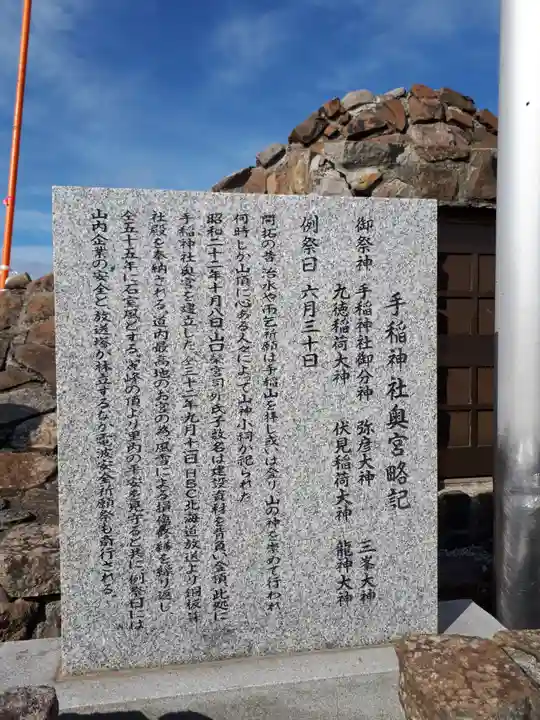 手稲神社奥宮略記
御祭神 手稲神社御分神 弥彦大神 三峯大神
九徳稲荷大神 伏見稲荷大神 龍神大神
例祭日 六月三十日
開拓の昔 治水や雨乞祈願は手稲山を拝し或いは登り 山の神を崇めて行われ
何時しか山頂に心ある人々によって山神小祠が祀られた
昭和二十二年十月八日 山口 宮司外氏子数名は建設資材を背負い登頂 此処に
手稲神社奥宮を建立した 仝三十二年九月十七日 HBC北海道放送より銅板葺
社殿を奉納される 道内最高地のお宮の為 風雪による損傷 修を繰り返し
仝五十五年に石室風とする 霊峰の頂より里内の平安を見守ると共に例祭日には
山内企業の安全と放送塔が林立するなか電波安全祈願祭も斎行される。